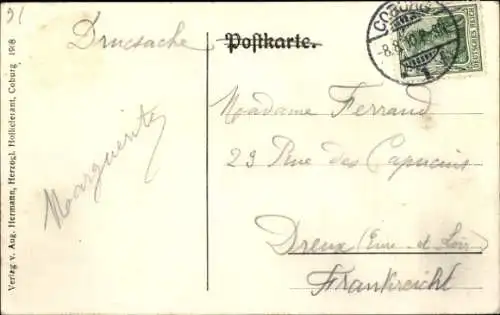 31
Drucsache
Postkarte.
COBURG
-8.8.10
1
DEUTSCHES REICH
Madame Ferrand
23 Rue des Capucins
Marguerite
Dreux (Eure et Loir)
Frankreich
Verlag v. Aug. Hermann, Herzogl. Hoflieferant, Coburg 1908